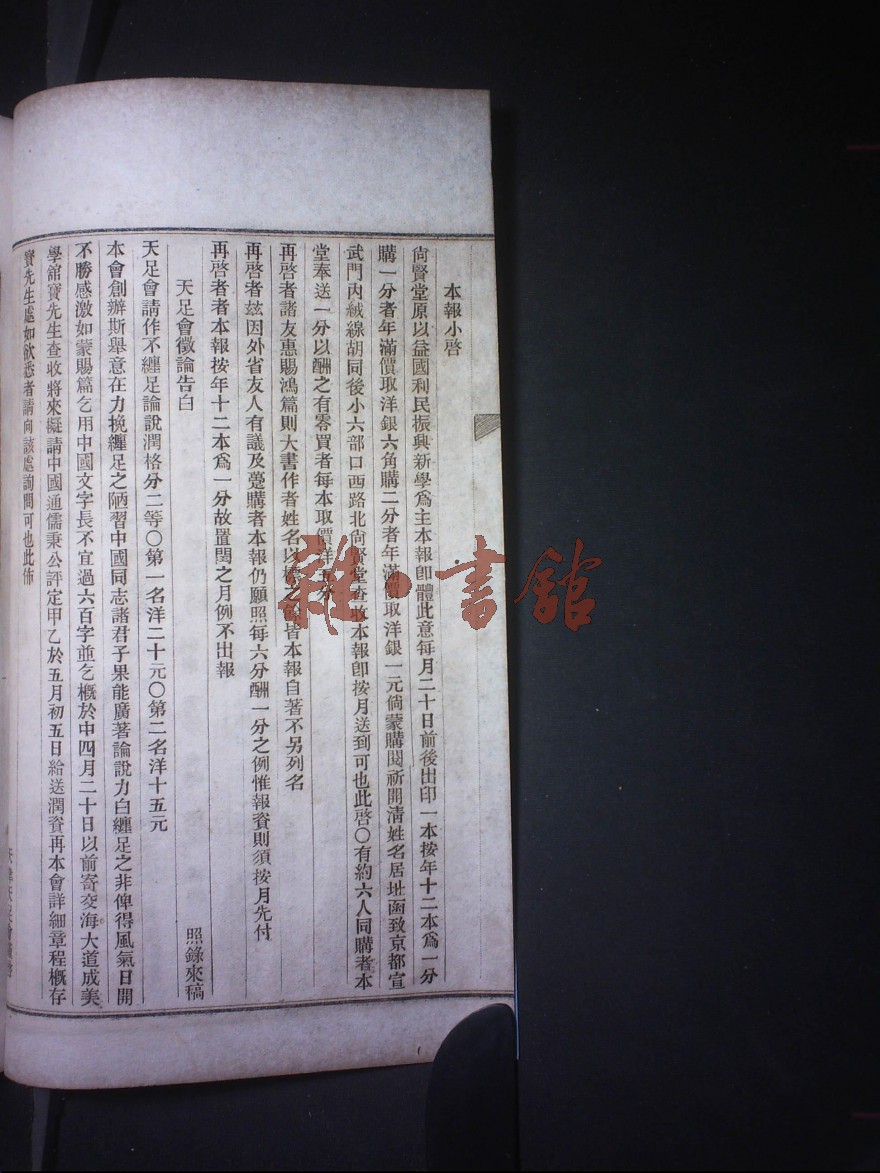 本報小啓
尙賢堂原以益國利民振興新學爲主本報卽體此意每月二十日前後出印一本按年十二本爲一分
購一分者年滿價取洋銀六角購二分者年滿價取洋銀一元倘蒙購閱祈開淸姓名居址函致京都宣
武門內絨線胡同後小六部口西路北尙賢堂查收本報卽按月送到可也此啓〇有約六人同購者本
堂奉送一分以酬之有零買者每本取價洋五分
再啓者諸友惠賜鴻篇則大書作者姓名以 之餘皆本報自著不另列名
再啓者玆因外省友人有議及躉購者本報仍願照每六分酬一分之例惟報資則須按月先付
再啓者者本報按年十二本爲一分故置閏之月例不出報
天足會徵論告白
照錄來稿
天足會請作不纏足論說潤格分二等〇第一名洋二十元〇第二名洋十五元
本會創辦斯舉意在力挽纏足之陋習中國同志諸君子果能廣著論說力白纏足之非俾得風氣日開
不勝感激如蒙賜篇乞用中國文字長不宜過六百字並乞槪於中四月二十日以前寄交海大道成美
學館寶先生查收將來擬請中國通儒秉公評定甲乙於五月初五日給送潤資再本會詳細章程槪存
寶先生處如欲悉者請向該處詢問可也此佈
天津天足會
雜·書館